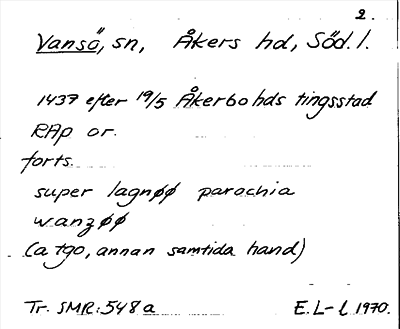 2.
Vansö, sn, Åkers hd, Söd. l.
1437 efter 19/5 Åkerbo hds tingsstad
RAp or.
forts.
super lagnøø parochia
wanzøø
(a tgo, annan samtida hand)
Tr. SMR: 548 a E. L-l 1970.